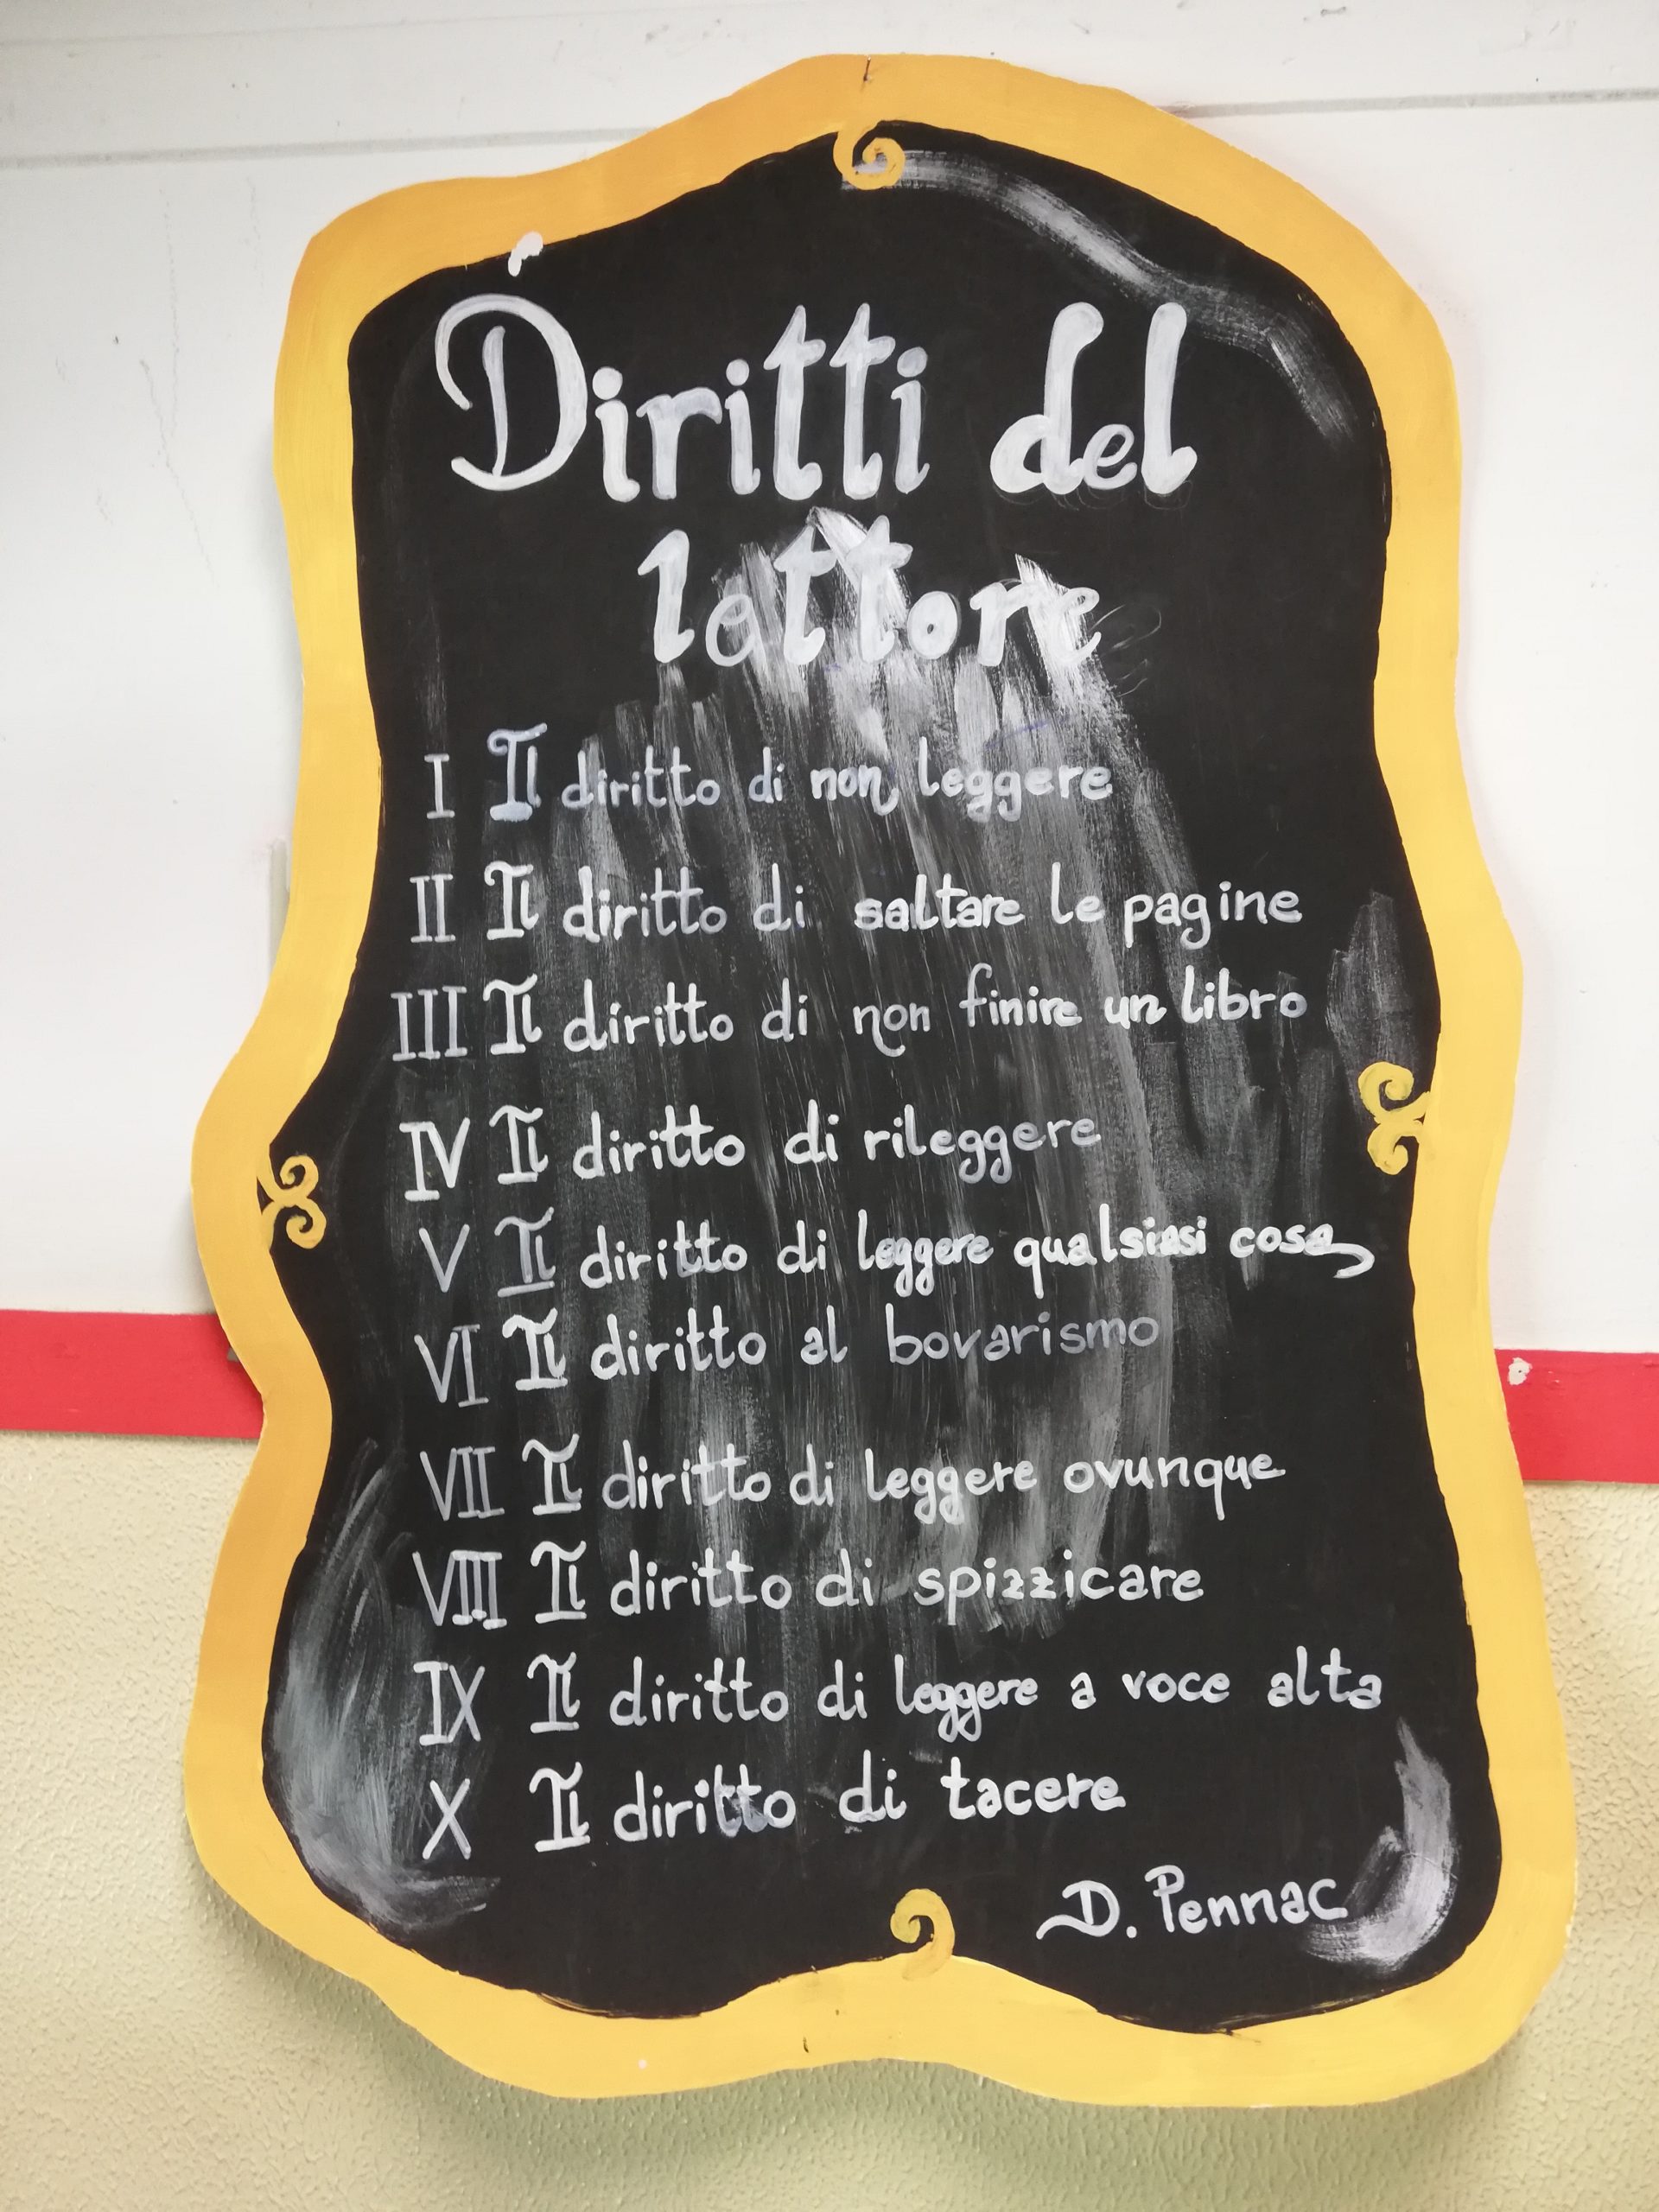 Diritti del
lettore
I Il diritto di non leggere
II Il diritto di saltare le pagine
III Il diritto di non finire un libro
IV Il diritto di rileggere
V Il diritto di leggere qualsiasi cosa
VI Il diritto al bovarismo
VII Il diritto di leggere ovunque
VIII Il diritto di spizzicare
IX Il diritto di leggere a voce alta
X Il diritto di tacere
D. Pennac